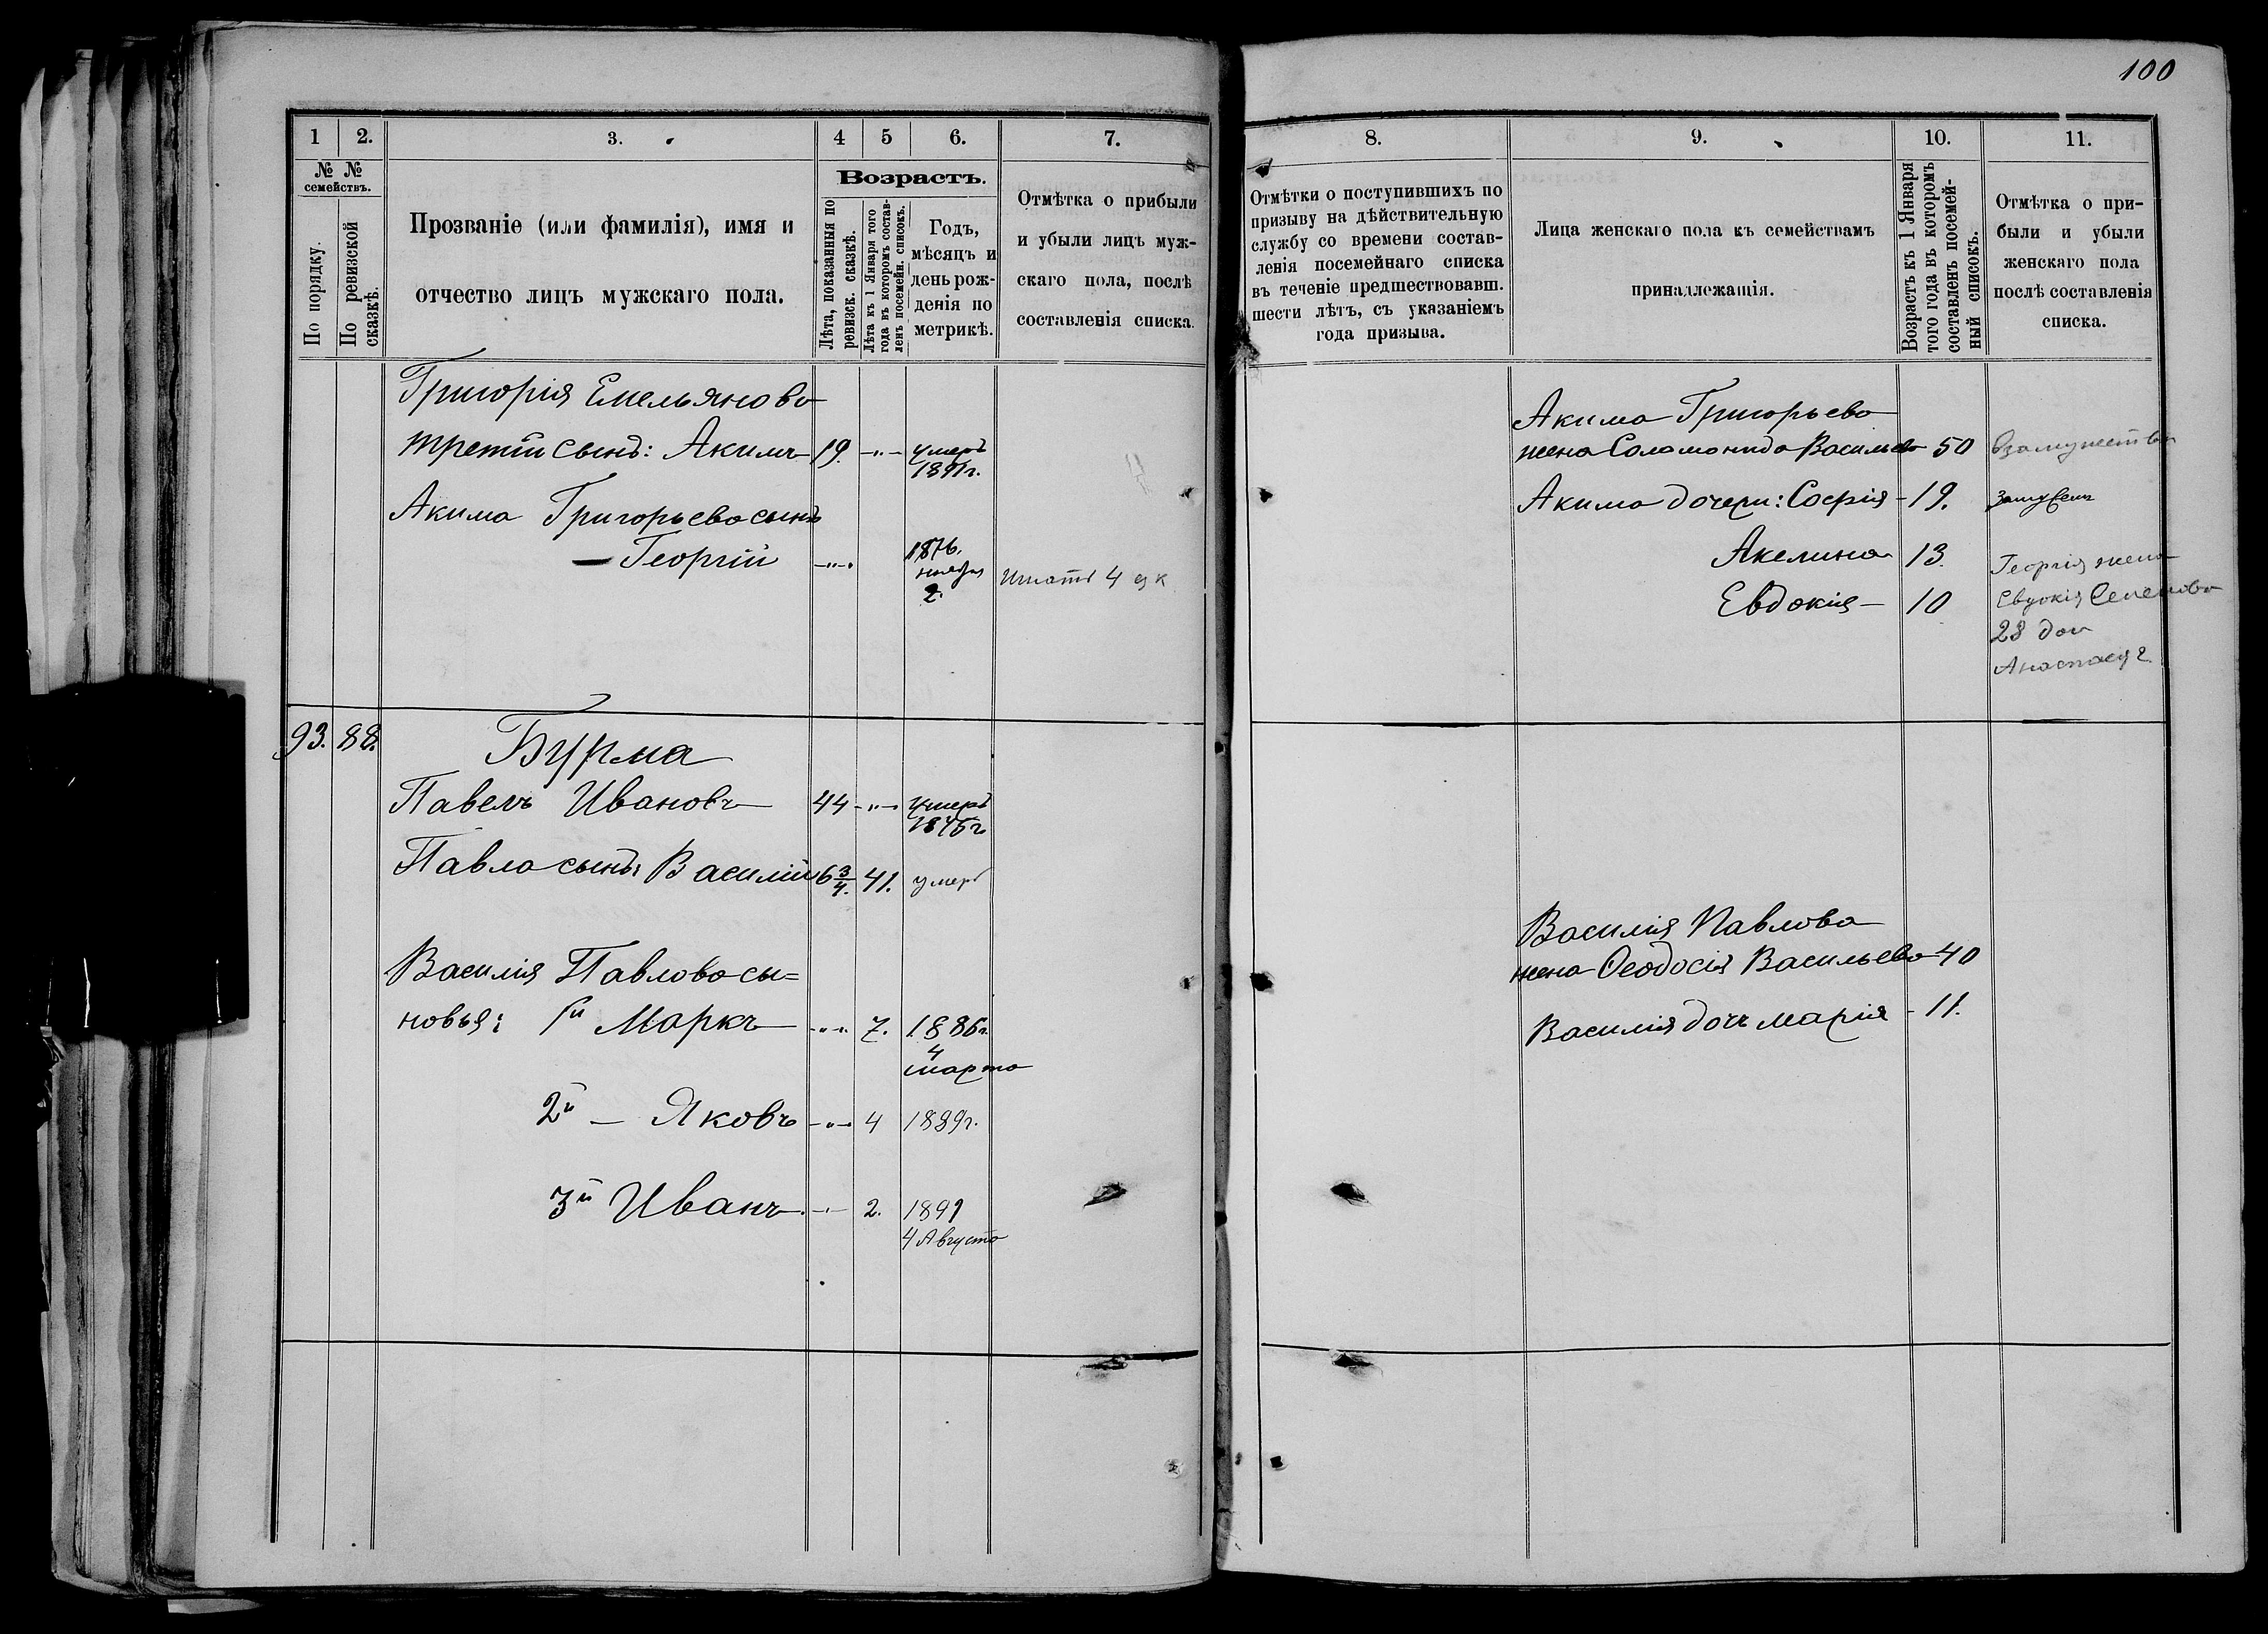 100
1 2. 3. 4 5 6. 7.
№ №
семействъ.
По порядку.
По ревизской
сказкѣ.
Прозваніе (или фамилія), имя и
отчество лицъ мужскаго пола.
Возрастъ.
Лѣта, показанныя по
ревизск. сказкѣ.
Лѣта къ 1 Января того
года въ которомъ состав-
ленъ посемейн. списокъ.
Годъ,
мѣсяцъ и
день рож-
денія по
метрикѣ.
Отмѣтка о прибыли
и убыли лицъ муж-
скаго пола, послѣ
составленія списка.
Григорія Емельянова
третій сынъ: Акимъ 19. -"- умеръ
1891г.
Акима Григорьева сынъ
— Георгій -"-
1876.
ноября
2.
93. 88. Бурма
Павелъ Ивановъ 44 -"- умеръ
Павла сынъ: Василій 6 3/4. 41. умеръ
Василія Павлова сы=
новья: 1й Маркъ -"- 7. 1886г.
4
марта
2й — Яковъ -"- 4 1889г.
3й Иванъ. -"- 2. 1891
4 Августа
8. 9. 10. 11.
Отмѣтки о поступившихъ по
призыву на дѣйствительную
службу со времени состав-
ленія посемейнаго списка
въ теченіе предшествовавш.
шести лѣтъ, съ указаніемъ
года призыва.
Лица женскаго пола къ семействамъ
принадлежащія.
Возрастъ къ 1 Января
того года въ которомъ
составленъ посемей-
ный списокъ.
Отмѣтка о при-
были и убыли
женскаго пола
послѣ составленія
списка.
Акима Григорьева
жена Саломонида Васильева 50
Акима дочери: Софія - 19.
Акелина 13.
Евдокія — 10
Георгія жена
Евдокія Семенова
28 доч
Василія Павлова
жена Ѳеодосія Васильева 40
Василія дочь Марія - 11.